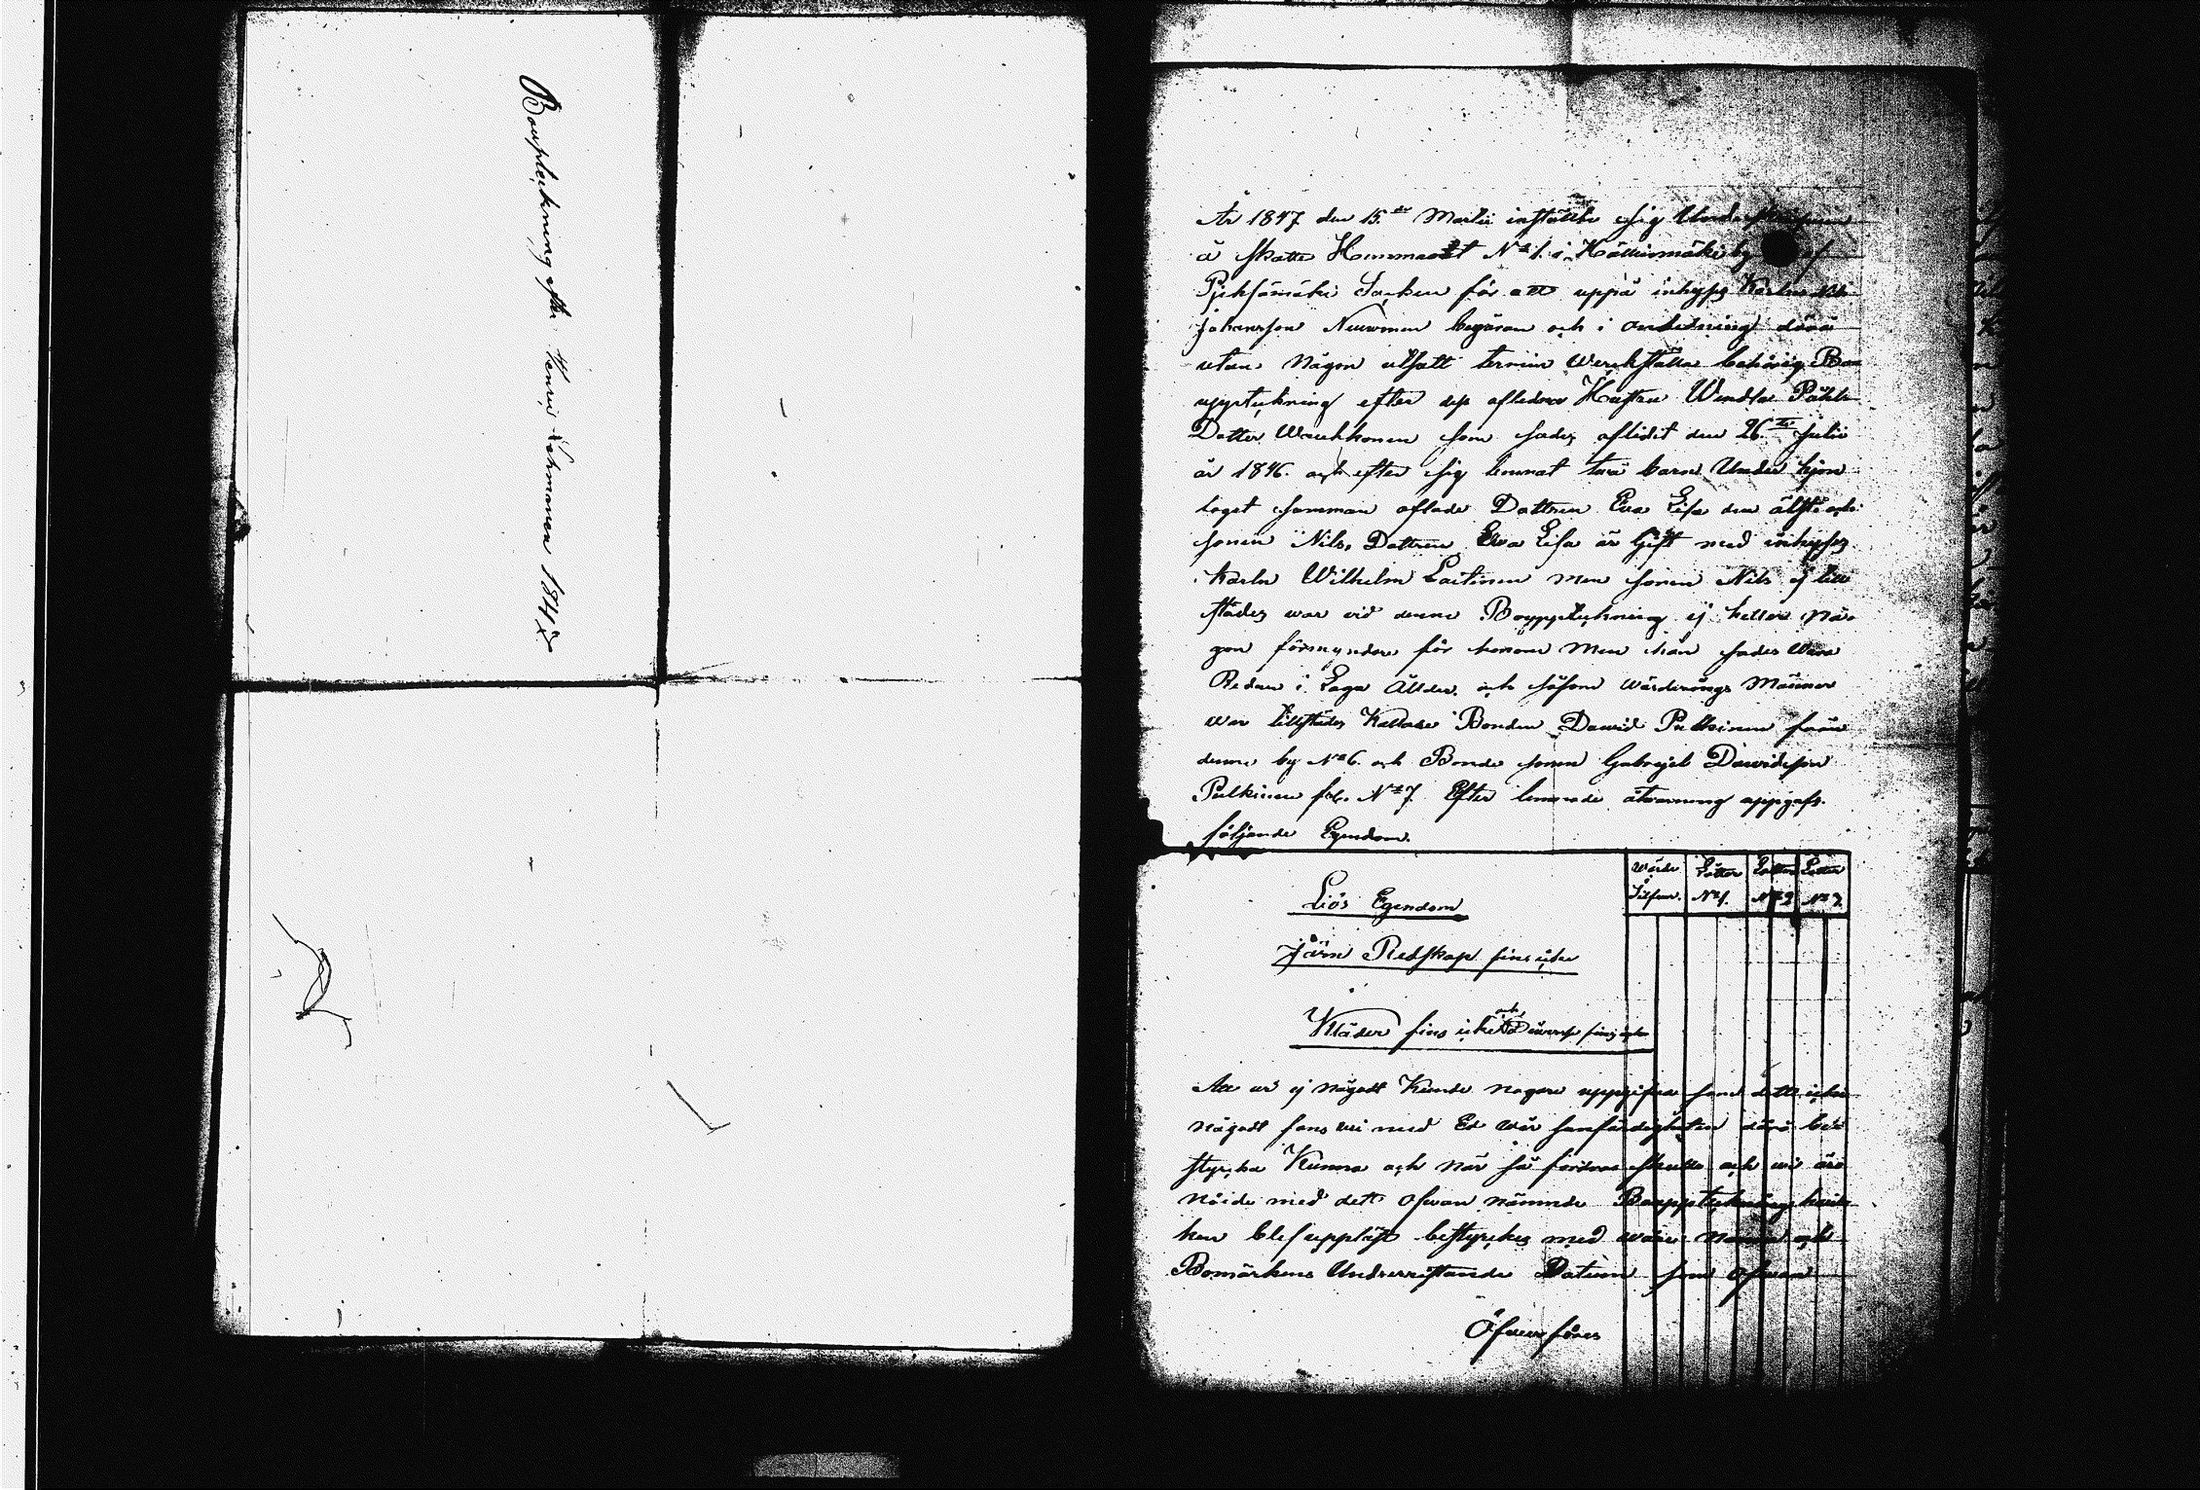 Bouptekning efter Henric Lehmonen 1847
År 1847 den 15de Martii instälte sig Undertecknad
å skatte Hemmanet No 1. i Hällinmäki by af
Pjeksämäki Socken för att uppå inhyses Karln Nils
Johansson Niuronen begäran och i anledning däraf
utan någon utsatt termin werckställa behörig Bou
uppteckning efter des aflidna Hustru Wendla Påhls
Dotter som sades aflidit den 26te Julii
år 1846. och efter sig lemnat två barn Under hjona
laget samman aflade Dottren Eva Lisa den älste och
sonen Nils, Dottren Eva Lisa är Gift med inhyses
Karln Wilhelm Laitinen men sonen Nils ej till
städes war vid denne Bouppteckning ej heller nå-
gon förmyndare för honom men han sades Wara
Redan i Laga Ålder. och såsom wärderings Männer
war tillstädes Kallade Bonden Dawid Pulkinen från
denne by No 6. och Bonde sonen Gabrjel Dawidsson
Pulkinen fr. No 7. Efter lemnade åtwarning uppgafs.
följande Egendom.
Wärde Silfver. Lotter No 1. Lotter No 2 Lotter No 3.
Lös Egendom
Järn Redskap fins icke
Kläder fins icke och Diverse fins icke
Att ej någodt Kunde nogare uppgifvas samt dett icke
någodt fans wi med Ed wår sanfärdigheten därå be
styrcka Kunna och när så fordras skulle och wi äro
nöide med dett ofwan nämnde Bouppteckning hwil-
ken blef uppläst bestyrckes med wåra Namn och
Bomärkens Underristande Datum som Ofwan
Öfwerföres